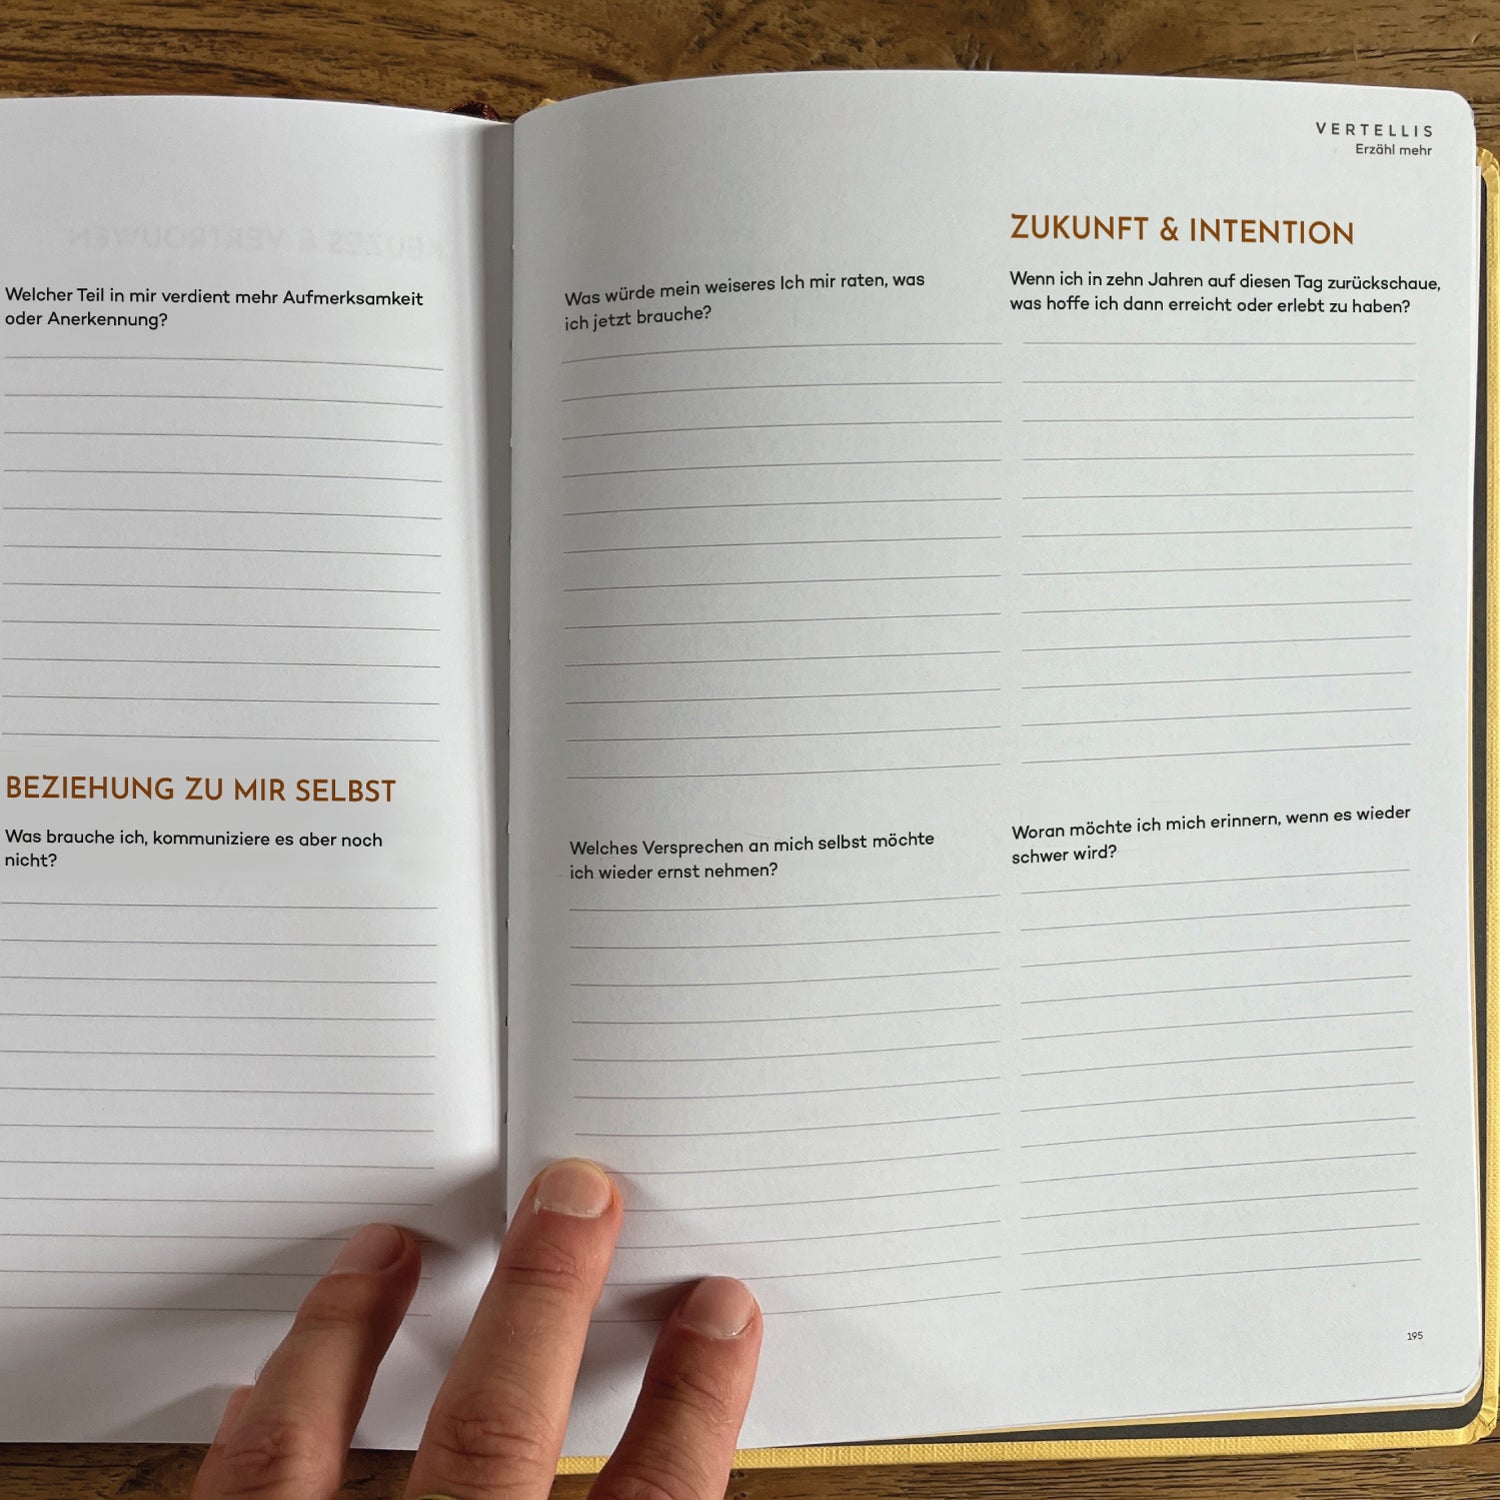 KEUZES & VERTROUWEN
Welcher Teil in mir verdient mehr Aufmerksamkeit
oder Anerkennung?
BEZIEHUNG ZU MIR SELBST
Was brauche ich, kommuniziere es aber noch
nicht?
VERTELLIS
Erzähl mehr
Was würde mein weiseres Ich mir raten, was
ich jetzt brauche?
Welches Versprechen an mich selbst möchte
ich wieder ernst nehmen?
ZUKUNFT & INTENTION
Wenn ich in zehn Jahren auf diesen Tag zurückschaue,
was hoffe ich dann erreicht oder erlebt zu haben?
Woran möchte ich mich erinnern, wenn es wieder
schwer wird?
195